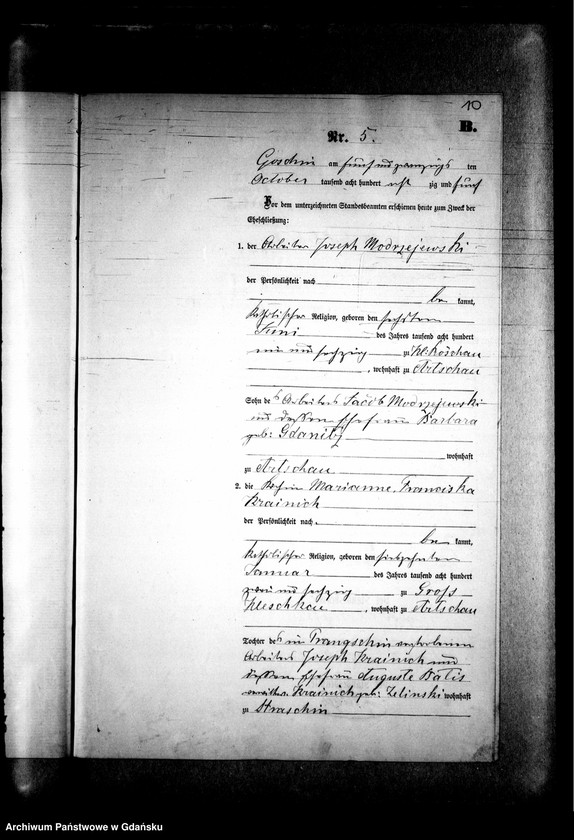 10
B.
Nr. 5.
Goschin am fünfundzwanzigsten
October tausend acht hundert achtzig und fünf
Vor dem unterzeichneten Standesbeamten erschienen heute zum Zweck der
Eheschließung:
1. der Arbeiter Joseph Modrzejewski
der Persönlichkeit nach
bekannt,
katholischer Religion, geboren den sechsten
Juni des Jahres tausend acht hundert
ein und sechzig zu Kl. Roschau
, wohnhaft zu Artschau
Sohn des Arbeiters Jacob Modrzejewski
und dessen Ehefrau Barbara
geb:
wohnhaft
zu Artschau
2. die Marianne Franciska
Krainich
der Persönlichkeit nach
bekannt,
katholischer Religion, geboren den siebzehnten
Januar des Jahres tausend acht hundert
zwei und sechzig zu Groß
Kleschkau, wohnhaft zu Artschau
Tochter des in Prangschin verstorbenen
Arbeiters Joseph Krainich und
dessen Ehefrau Auguste
Krainich geb: Zelinski wohnhaft
zu Straschin
Archiwum Państwowe w Gdańsku